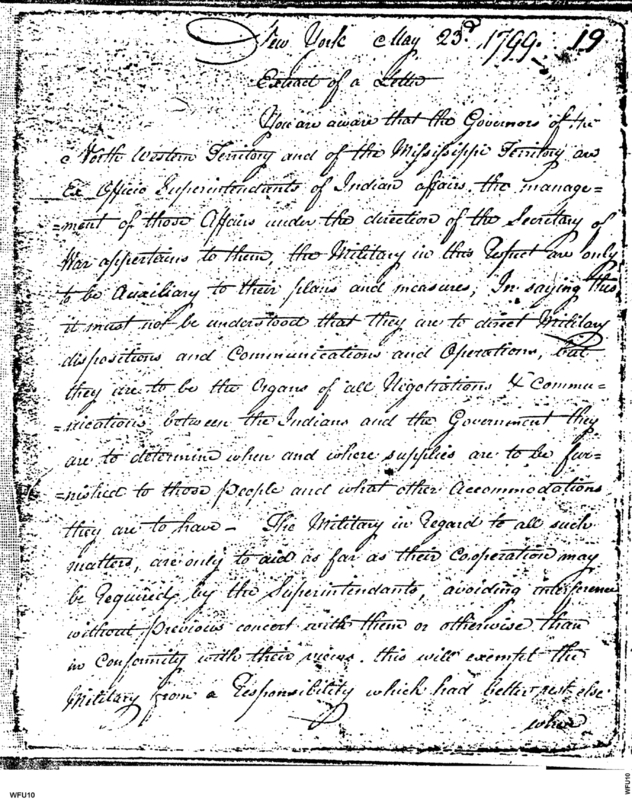 New York May 23d. 1799. 19
Extract of a Letter
You are aware that the Governors of the
North Western Territory and of the Mississippi Territory are
Ex Officio Superintendants of Indian affairs. the manage=
=ment of those Affairs under the direction of the Secretary of
War appertains to them, the Military in this Respect are only
to be Auxiliary to their plans and measures; In saying this
it must not be understood that they are to direct Military
dispositions and Communications and Operations, but
they are to be the Organs of all Negotiations & Commu=
=nications between the Indians and the Government they
are to determine when and where supplies are to be fur=
=nished to those people and what other Accommodations
they are to have – The Military in Regard to all such
matters, are only to aid as far as their Cooperation may
be Required by the Superintendants, avoiding interference
without previous concert with them or otherwise than
in conformity with their views. this will exempt the
Military from a Responsibility which had better rest else
where
WFU10
WFU10